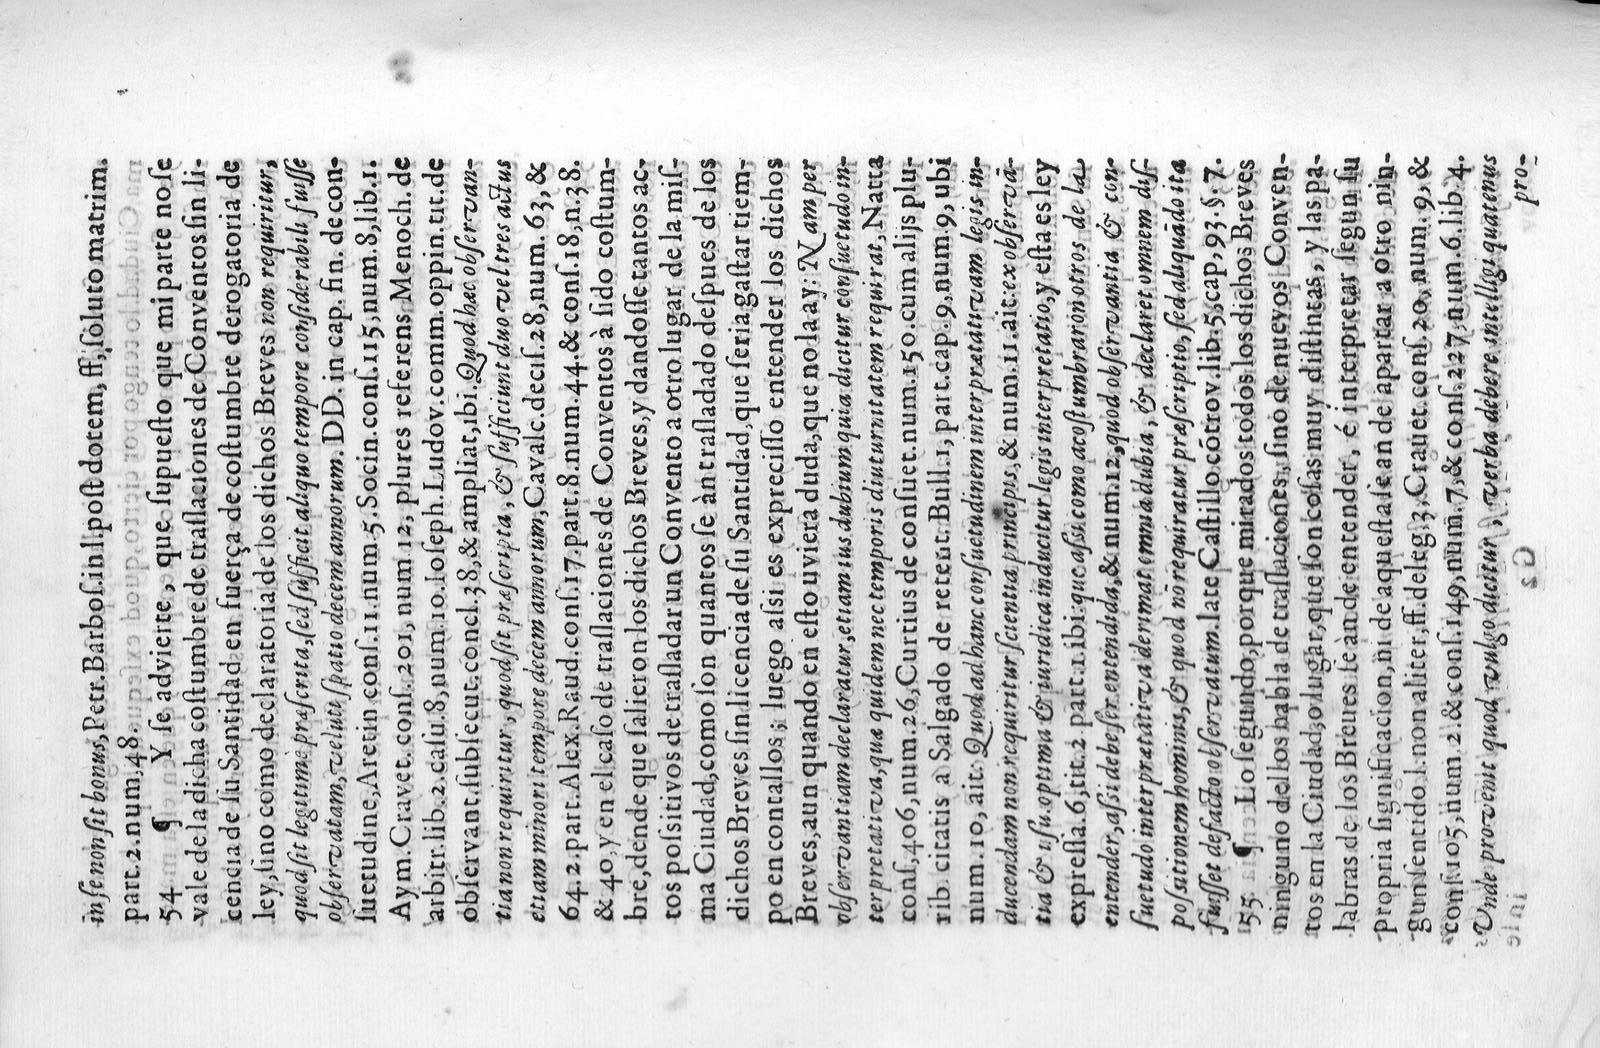 in se non sit bonus, Petr. Barbos. in l. post dotem, ff. soluto matrim.
part. 2. num. 48.
54 ¶ Y se advierte, que supuesto que mi parte no se
vale de la dicha costumbre de traslaciones de Conventos sin li-
cencia de su Santidad, en fuerça de costumbre derogatoria de
ley, sino como declaratoria de los dichos Breves non requiritur,
quod sit legitimè præscrita, sed sufficit aliquo tempore considerabili fuisse
observatam, veluti spatio decem annorum. DD. in cap. fin. de con-
suetudine, Aretin cons. 11. num 5. Socin. cons. 115, num. 8, lib. 1.
Aym. Cravet. cons. 201, num. 12; plures referens Menoch. de
arbitr. lib. 2. casu. 8, num. 10. Ioseph. Ludov. comm. oppin. tit. de
observant. subsecut. concl. 38, & ampliat, ibi. Quod hæc observan-
tia non requiritur, quod sit præscripta, & sufficiunt duo vel tres actus
etiam minori tempore decem annorum, Cavalc. decis. 28, num. 63, &
64. 2. part. Alex. Raud. cons. 17. part. 8. num. 44. & cons. 18, n. 38.
& 40, y en el caso de traslaciones de Conventos à sido costum-
bre, dende que salieron los dichos Breves, y dandosse tantos ac-
tos positivos de trasladar un Convento a otro lugar de la mis-
ma Ciudad, como son quantos se àn trasladado despues de los
dichos Breves sin licencia de su Santidad, que seria gastar tiem-
po en contallos; luego assi es precisso entender los dichos
Breves, aun quando en esto uviera duda, que no la ay: Nam per
observantiam declaratur, etiam ius dubium quia dicitur consuetudo in-
terpretativa, quæ quidem nec temporis diuturnitatem requirat, Natta
cons, 406, num. 26, Curtius de consuet. num. 150. cum alijs plu-
rib. citatis a Salgado de retent. Bull. 1, part. cap. 9, num 9, ubi
num. 10, ait. Quod ad hanc consuetudinem interpratativam legis in-
ducendam non requiritur scientia principis, & num. 11. ait: ex observã-
tia & usu. optima & iuridica inducitur legis interpretatio, y esta es ley
expressa. 6, tit. 2. part. 1. ibi: que assi como acostumbraron otros de la
entender, assi debe ser entendida, & num. 12, quod observantia & con-
suetudo interprætativa derimat omnia dubia, & declaret omnem dis-
positionem hominis, & quod nõ requiratur præscriptio, sed aliquãdo ita
fuisset de facto observatum. late Castillo cõtrov. lib. 5, cap, 93. §. 7.
55 ¶ Lo segundo, porque mirados todos los dichos Breves
ninguno dellos habla de traslaciones, sino de nuevos Conven-
tos en la Ciudad, o lugar, que son cosas muy distintas, y las pa-
labras de los Breues se àn de entender, é interpretar segun su
propria significacion, ni de aquesta se an de apartar a otro nin-
gun sentido l. non aliter, ff. de leg. 3, Crauet. cons. 20, num. 9, &
cons. 105, num. 2. & cons. 149, num. 7, & cons. 227, num. 6. lib. 4.
Unde provenit quod vulgo dicitur, verba debere intelligi quatenus
pro-